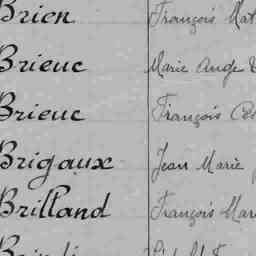 Brien François Mat
Brieuc Marie Ange
Brieuc François
Brigaux Jean Marie
Brilland François Mar